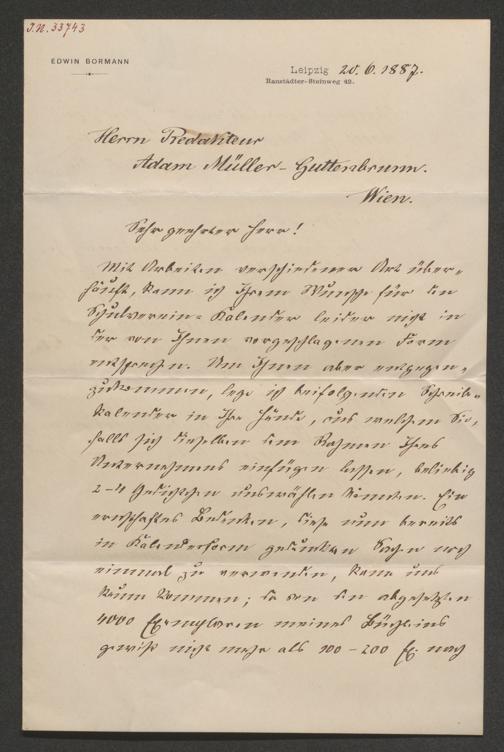 J.N. 33743
EDWIN BORMANN
Leipzig 20.6.1887.
Ranstädter-Steinweg 42.
Herrn Redakteur
Adam Müller-Guttenbrunn.
Wien.
Sehr geehrter Herr!
Mit Arbeiten verschiedener Art über-
häuft, kann ich Ihrem Wunsche für den
Schulverein-Kalender leider nicht in
der von Ihnen vorgeschlagenen Form
entsprechen. Um Ihnen aber entgegen-
zukommen, lege ich beifolgenden Schreib-
kalender in Ihre Hände, aus welchem Sie,
falls sich dieselben dem Rahmen Ihres
Unternehmens einfügen lassen, beliebig
2-4 Gedichtchen auswählen könnten. Ein
ernsthaftes Bedenken, diese nun bereits
in Kalenderform gedruckten Sachen noch
einmal zu verwenden, kann uns
kaum kommen; da von den abgesetzten
4000 Exemplaren meines Büchleins
gewiß nicht mehr als 100-200 Ex. nach